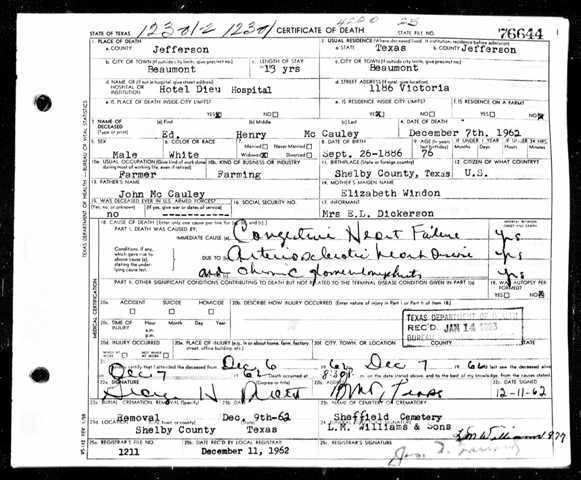 STATE OF TEXAS
12301-2 1230/
CERTIFICATE OF DEATH
4200 25
STATE FILE NO.
76644
TEXAS DEPARTMENT OF HEALTH — BUREAU OF VITAL STATISTICS
1. PLACE OF DEATH
a. COUNTY
Jefferson
2. USUAL RESIDENCE (Where deceased lived. If institution: residence before admission)
a. STATE
Texas
b. COUNTY
Jefferson
b. CITY OR TOWN (If outside city limits, give precinct no.)
Beaumont
c. LENGTH OF STAY
13 yrs
c. CITY OR TOWN (If outside city limits, give precinct no.)
Beaumont
d. NAME OF (If not in hospital, give street address) HOSPITAL OR INSTITUTION
Hotel Dieu Hospital
d. STREET ADDRESS (If rural, give location)
1186 Victoria
e. IS PLACE OF DEATH INSIDE CITY LIMITS?
YES NO
e. IS RESIDENCE INSIDE CITY LIMITS?
YES NO
f. IS RESIDENCE ON A FARM?
YES NO
3. NAME OF DECEASED (Type or print)
(a) First (b) Middle (c) Last
Ed. Henry Mc Cauley
4. DATE OF DEATH
December 7th, 1962
5. SEX
Male
6. COLOR OR RACE
White
7. Married Never Married
Widowed Divorced
8. DATE OF BIRTH
Sept. 26-1886
9. AGE (In years last birthday)
76
IF UNDER 1 YEAR
Months Days
IF UNDER 24 HRS.
Hours Min.
10a. USUAL OCCUPATION (Give kind of work done during most of working life, even if retired)
Farmer
10b. KIND OF BUSINESS OR INDUSTRY
Farming
11. BIRTHPLACE (State or foreign country)
Shelby County, Texas
12. CITIZEN OF WHAT COUNTRY?
U.S.
13. FATHER'S NAME
John Mc Cauley
14. MOTHER'S MAIDEN NAME
Elizabeth Windon
15. WAS DECEASED EVER IN U.S. ARMED FORCES?
(Yes, no, or unknown) (If yes, give war or dates of service)
no
16. SOCIAL SECURITY NO.
17. INFORMANT
Mrs E.L. Dickerson
MEDICAL CERTIFICATION
18. CAUSE OF DEATH (Enter only one cause per line for (a), (b), and (c).)
PART I. DEATH WAS CAUSED BY:
IMMEDIATE CAUSE (a)
Congestive Heart Failure yrs
Conditions, if any, which gave rise to above cause (a), stating the underlying cause last.
DUE TO (b)
Arteriosclerotic heart disease yrs
and chronic glomerulonephritis yrs
PART II. OTHER SIGNIFICANT CONDITIONS CONTRIBUTING TO DEATH BUT NOT RELATED TO THE TERMINAL DISEASE CONDITION GIVEN IN PART I(a)
19. WAS AUTOPSY PERFORMED?
YES NO
20a. ACCIDENT SUICIDE HOMICIDE
20b. DESCRIBE HOW INJURY OCCURRED. (Enter nature of injury in Part I or Part II of item 18.)
20c. TIME OF INJURY
Hour Month Day Year
TEXAS DEPARTMENT OF HEALTH
REC'D JAN 14 1963
BUREAU
20d. INJURY OCCURRED
20e. PLACE OF INJURY (e.g., in or about home, farm, factory, street, office building, etc.)
20f. CITY, TOWN, OR LOCATION
COUNTY STATE
21. I hereby certify that I attended the deceased from Dec 6 Dec 7
Dec 7
22a. SIGNATURE
(Degree or title)
22b. ADDRESS
22c. DATE SIGNED
12-11-62
23a. BURIAL, CREMATION, REMOVAL (Specify)
Removal
23b. DATE
Dec. 9th-62
23c. NAME OF CEMETERY OR CREMATORY
Sheffield Cemetery
23d. LOCATION
Shelby County Texas
24. FUNERAL DIRECTOR'S SIGNATURE
L.M. Williams & Sons
25a. REGISTRAR'S FILE NO.
1211
25b. DATE REC'D BY LOCAL REGISTRAR
December 11, 1962
25c. REGISTRAR'S SIGNATURE